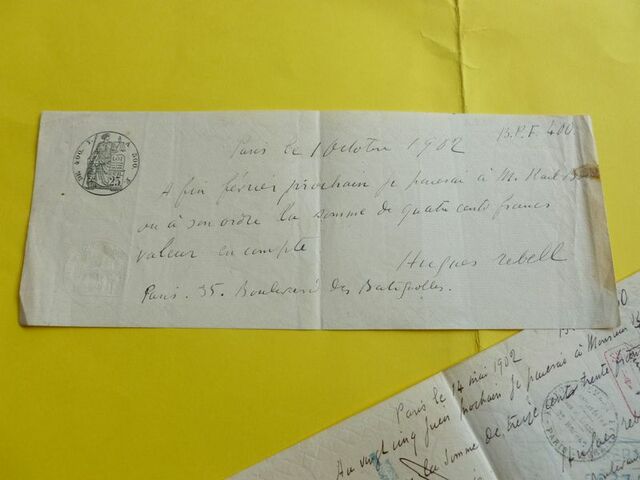 B.P.F. 400
Paris le 1 Octobre 1902
DE 400 F. A 500 F.
25
A fin février prochain je paierai à M. Karl
ou à son ordre la somme de quatre cents francs
valeur en compte
Hugues rebell
Paris. 35. Boulevard des Batignolles.
Paris le 14 mai 1902
Au vingt cinq juin prochain je paierai à Monsieur
la somme de treize cents trente
Hugues reb